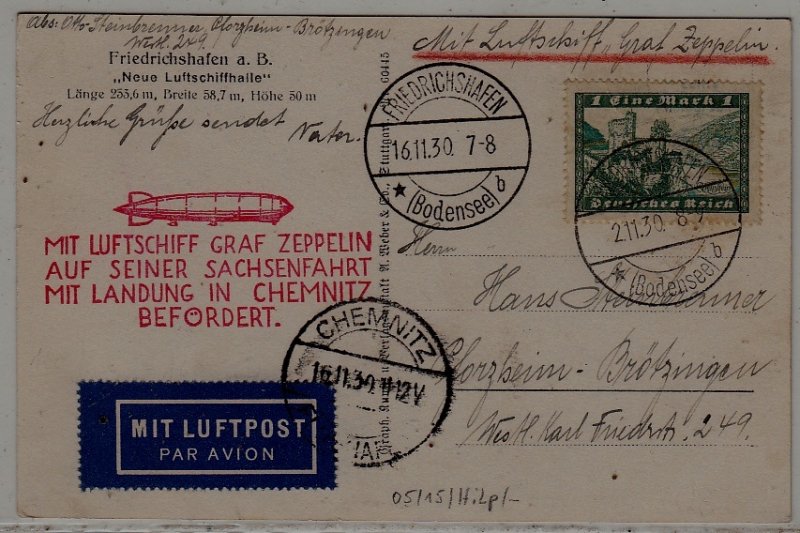 Abs: Otto Steinbrenner, Pforzheim-Brötzingen
Westl. 249.
Friedrichshafen a. B.
„Neue Luftschiffhalle"
Länge 255,6 m, Breite 58,7 m, Höhe 50 m
Herzliche Grüße sendet Vater.
Mit Luftschiff „Graf Zeppelin.
60445
FRIEDRICHSHAFEN
16.11.30. 7-8
(Bodensee) b
1 Eine Mark 1
Deutsches Reich
2.11.30. 8-9
(Bodensee) b
MIT LUFTSCHIFF GRAF ZEPPELIN
AUF SEINER SACHSENFAHRT
MIT LANDUNG IN CHEMNITZ
BEFÖRDERT.
A. Weber & Co., Stuttgart
Herrn
Hans Steinbrenner
Pforzheim-Brötzingen
Westl. Karl Friedrstr. 249.
CHEMNITZ
16.11.30. 11-12V
MIT LUFTPOST
PAR AVION